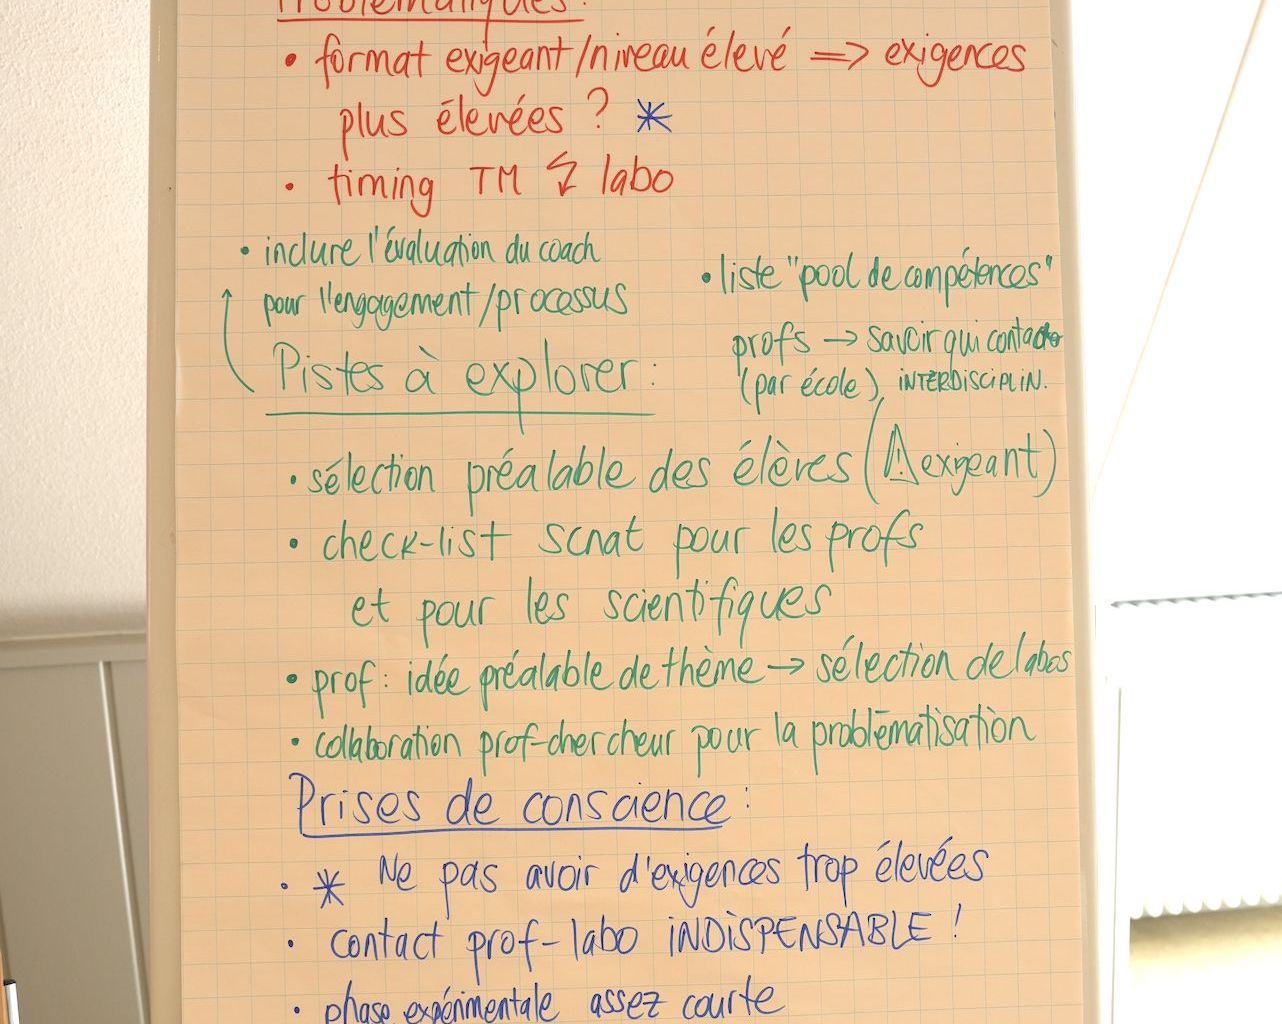 Problématiques:
• format exigeant/niveau élevé => exigences
plus élevées ? *
• timing TM ↯ labo
• inclure l'évaluation du coach
pour l'engagement/processus
• liste "pool de compétences"
profs → savoir qui contacter
(par école), INTERDISCIPLIN.
Pistes à explorer :
• sélection préalable des élèves (⚠ exigeant)
• check-list scnat pour les profs
et pour les scientifiques
• prof : idée préalable de thème → sélection de labos
• collaboration prof-chercheur pour la problématisation
Prises de conscience :
• * Ne pas avoir d'exigences trop élevées
• contact prof-labo INDISPENSABLE !
• phase expérimentale assez courte